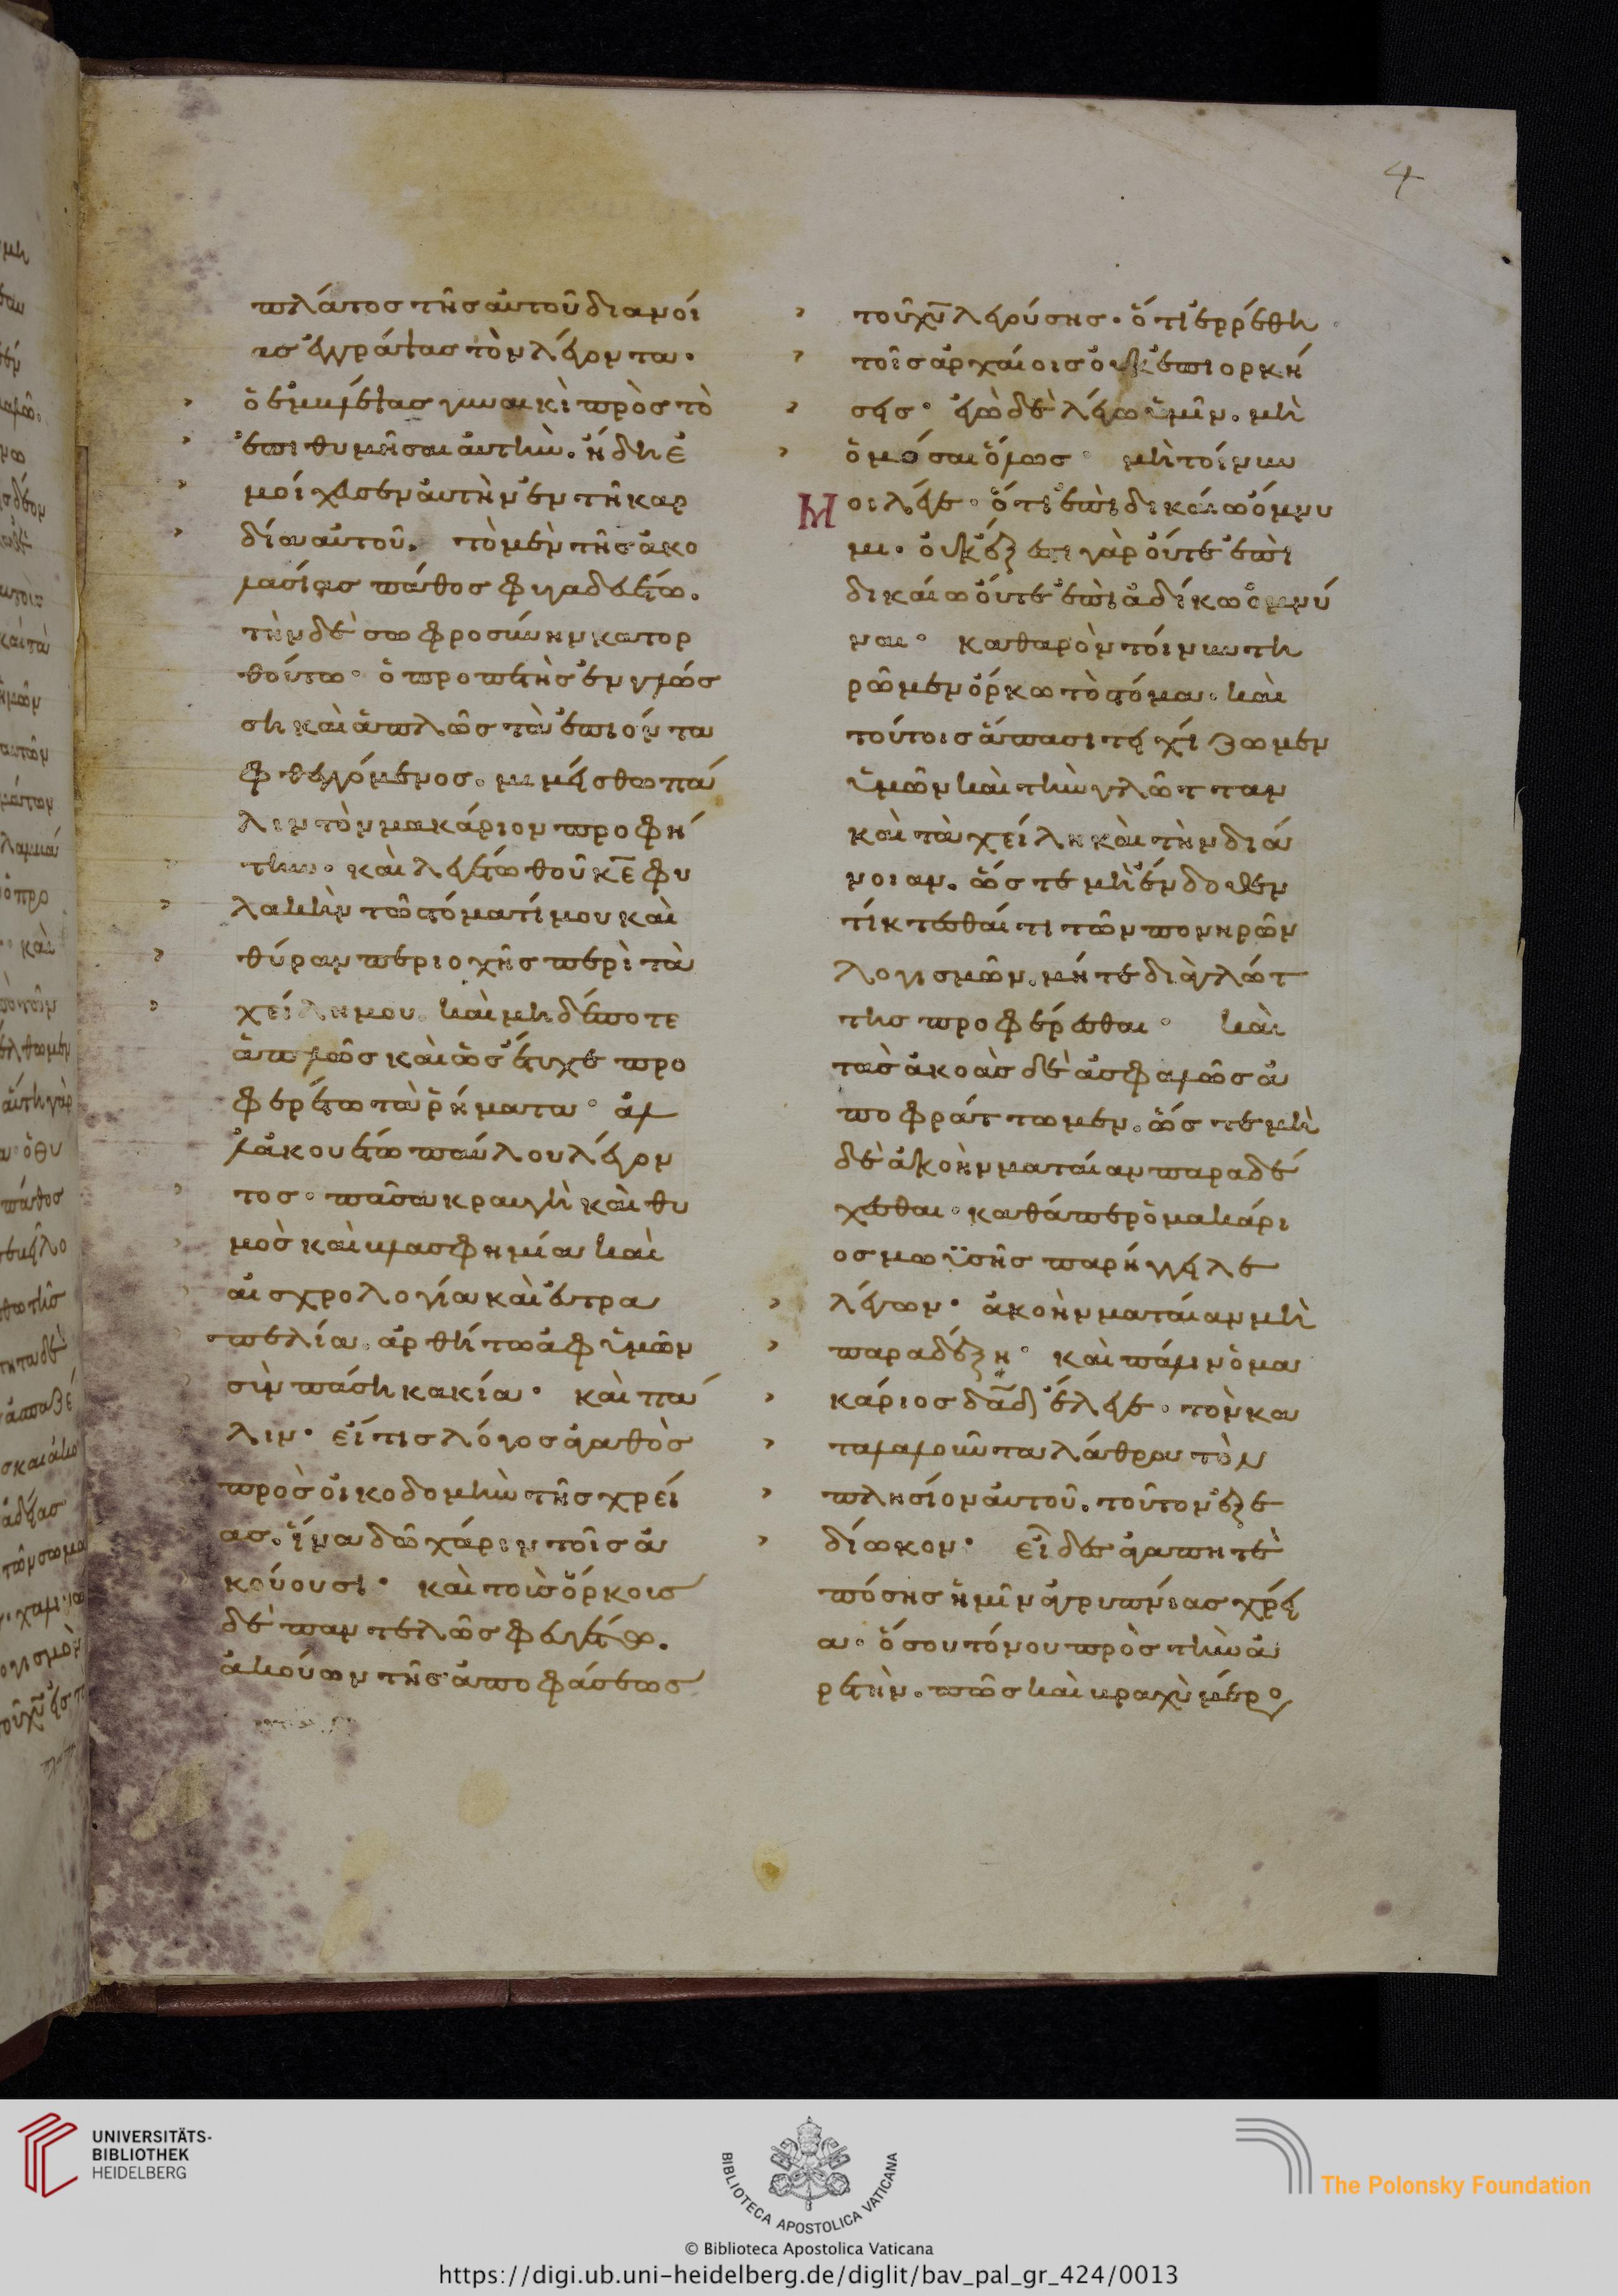 4
πλάτος τῆς αὐτοῦ διανοί
ας ἐγγράψας τὸν λέγοντα·
ὁ ἐμβλέψας γυναικὶ πρὸς τὸ
ἐπιθυμῆσαι αὐτὴν. ἤδη ἐ
μοίχευσεν αὐτὴν ἐν τῆ καρ
δία αὐτοῦ. τὸ μὲν τῆς ἀκο
λασίας πάθος φυγαδευέτω.
τὴν δὲ σωφροσύνην κατορ
θούτω· ὁ προπετὴς ἐν γλώσ
ση καὶ ἁπλῶς τὰ ἐπιόντα
φθεγγόμενος. μιμείσθω πά
λιν τὸν μακάριον προφή
την· καὶ λεγέτω θοῦ κ̅ε̅ φυ
λακὴν τῶ στόματί μου καὶ
θύραν περιοχῆς περὶ τὰ
χείλη μου. καὶ μηδέποτε
ἁπλῶς καὶ ὡς ἔτυχε προ
φερέτω τὰ ῥήματα· ἀλ
λ' ἀκουέτω παύλου λέγον
τος· πᾶσα κραυγὴ καὶ θυ
μὸς καὶ βλασφημία καὶ
αἰσχρολογία καὶ εὐτρα
πελία. ἀρθήτω ἀφ ὑμῶν
σὺν πάση κακία· καὶ πά
λιν· εἴ τις λόγος ἀγαθὸς
πρὸς οἰκοδομὴν τῆς χρεί
ας. ἵνα δῶ χάριν τοῖς ἀ
κούουσι· καὶ τοὺς ὅρκους
δὲ παντελῶς φευγέτω.
ἀκούων τῆς ἀποφάσεως
τοῦ χ̅υ̅ λεγούσης· ὅτι ἐρρέθη
τοῖς ἀρχαίοις οὐκ ἐπιορκή
σεις· ἐγὼ δὲ λέγω ὑμῖν. μὴ
ὀμόσαι ὅλως· μὴ τοίνυν
μοι λέγε· ὅτι ἐπὶ δικαίω ὄμνυ
μι. οὐκ ἔξεστι γὰρ οὔτε ἐπὶ
δικαίω οὔτε ἐπὶ ἀδίκω ὀμνύ
ναι· καθαρὸν τοίνυν τη
ρῶμεν ὅρκω τὸ στόμα. καὶ
τούτοις ἅπασι τειχίζωμεν
ὑμῶν καὶ τὴν γλῶτταν
καὶ τὰ χείλη καὶ τὴν διά
νοιαν. ὥστε μὴ ἔνδοθεν
τίκτεσθαί τι τῶν πονηρῶν
λογισμῶν. μήτε διὰ γλώτ
της προφέρεσθαι· καὶ
τὰς ἀκοὰς δὲ ἀσφαλῶς ἀ
ποφράττωμεν. ὥστε μὴ
δὲ ἀκοὴν ματαίαν παραδέ
χεσθαι· καθάπερ ὁ μακάρι
ος μωϋσῆς παρήγγειλε
λέγων· ἀκοὴν ματαίαν μὴ
παραδέξη· καὶ πάλιν ὁ μα
κάριος δα̅δ̅ ἔλεγε· τὸν κα
ταλαλοῦντα λάθρα τὸν
πλησίον αὐτοῦ. τοῦτον ἐξε
δίωκον· εἶδες ἀγαπητὲ
πόσης ἡμῖν ἀγρυπνίας χρεί
α· ὅσου πόνου πρὸς τὴν ἀ
ρετὴν. πῶς καὶ βραχὺ μέρο
UNIVERSITÄTS-
BIBLIOTHEK
HEIDELBERG
BIBLIOTECA APOSTOLICA VATICANA
The Polonsky Foundation
© Biblioteca Apostolica Vaticana
https://digi.ub.uni-heidelberg.de/diglit/bav_pal_gr_424/0013